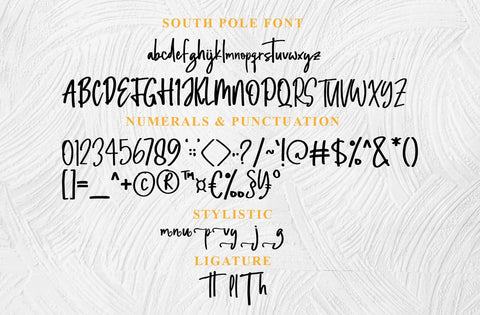 SOUTH POLE FONT
abcdefghijklmnopqrstuvwxyz
ABCDEFGHIJKLMNOPQRSTUVWXYZ
NUMERALS & PUNCTUATION
0123456789":;<>,.?/~'!@#$%^&*()
[]=_^+©®™¤€‰§¥º
STYLISTIC
m n u p y j g
LIGATURE
tt pl Th